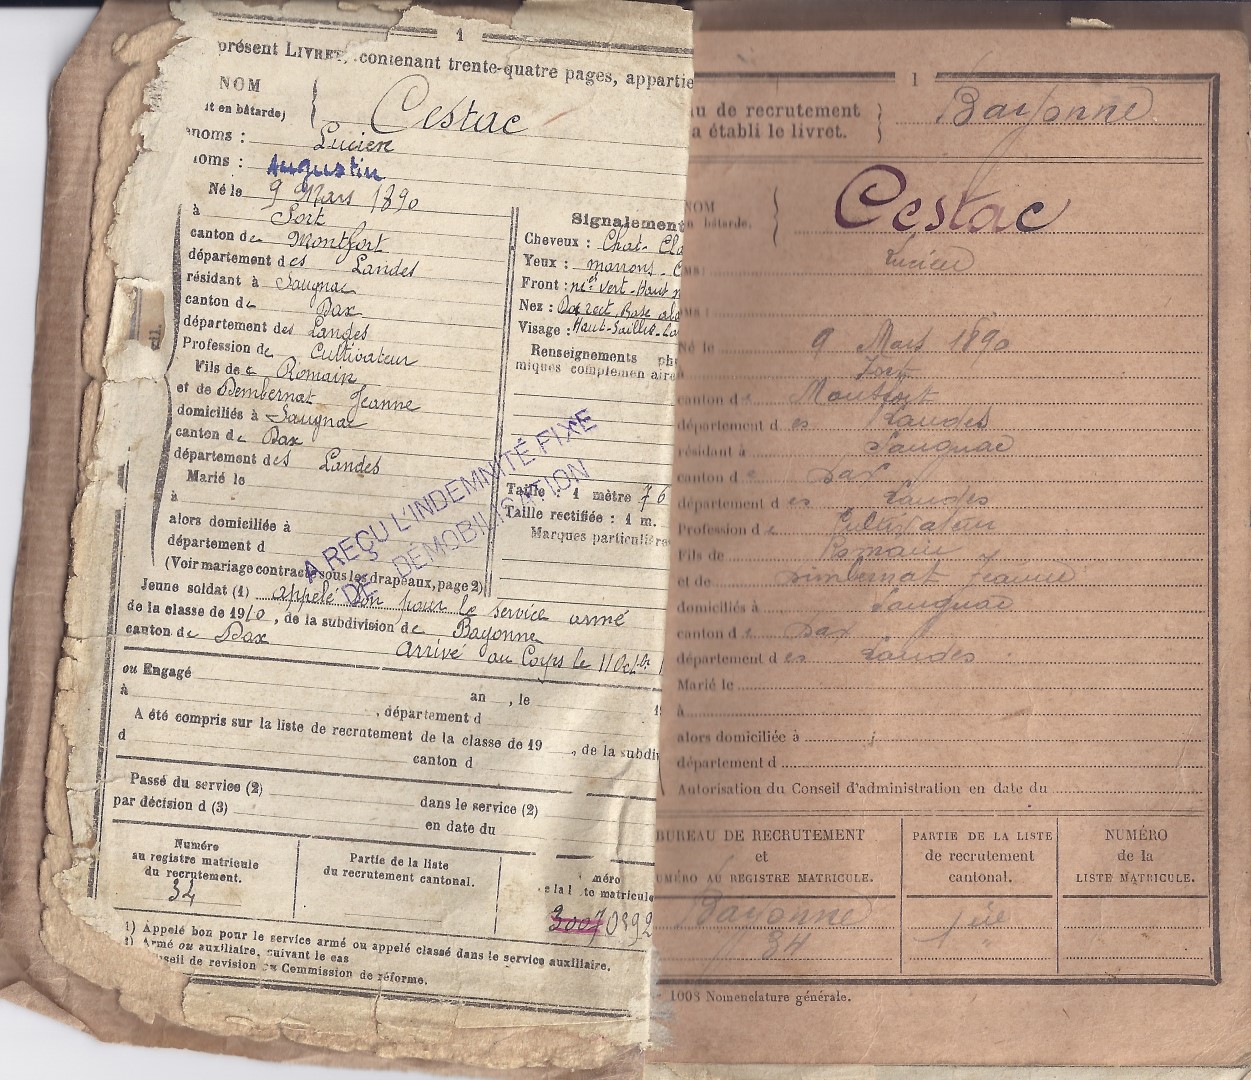 1
présent LIVRET, contenant trente-quatre pages, appartie
NOM
it en bâtarde)
Cestac
noms : Lucien
oms : Augustin
Né le 9 Mars 1890
à Sort
canton de Montfort
département des Landes
résidant à Saugnac
canton de Dax
département des Landes
Profession de Cultivateur
Fils de Romain
et de Dembernat Jeanne
domiciliés à Saugnac
canton de Dax
département des Landes
Marié le
à
alors domiciliée à
département d
(Voir mariage contracté sous les drapeaux, page 2)
Signalement
Cheveux : Chat-
Yeux : marrons-
Front : vert-Haut
Nez : rect. Base
Visage : Haut-
Renseignements ph
miques complémen aire
Taille 1 mètre 76
Taille rectifiée : 1 m.
Marques particulières
A REÇU L'INDEMNITÉ FIXE
DE DÉMOBILISATION
Jeune soldat (1) appelé bon pour le service armé
de la classe de 1910, de la subdivision de Bayonne
canton de Dax Arrivé au Corps le 11 Octbre 1
ou Engagé
à an , le 19
, département d
A été compris sur la liste de recrutement de la classe de 19 , de la subdiv
d canton d
Passé du service (2) dans le service (2)
par décision d (3) en date du
Numéro
au registre matricule
du recrutement.
34
Partie de la liste
du recrutement cantonal.
méro
e la l te matricule
3007 0392
1) Appelé bon pour le service armé ou appelé classé dans le service auxiliaire.
) Armé ou auxiliaire, suivant le cas
seil de revision ou Commission de réforme.
cil.
1
u de recrutement
a établi le livret.
Bayonne
NOM
n bâtarde.
Cestac
Lucien
Né le 9 Mars 1890
Sort
canton d e Montfort
département d es Landes
résidant à Saugnac
canton d e Dax
département d es Landes
Profession d e Cultivateur
Fils de Romain
et de Dimbernat Jeanne
domiciliés à Saugnac
canton d e Dax
département d es Landes
Marié le
à
alors domiciliée à
département d
Autorisation du Conseil d'administration en date du
BUREAU DE RECRUTEMENT
et
UMÉRO AU REGISTRE MATRICULE.
Bayonne
34
PARTIE DE LA LISTE
de recrutement
cantonal.
1ère
"
NUMÉRO
de la
LISTE MATRICULE.
1003 Nomenclature générale.